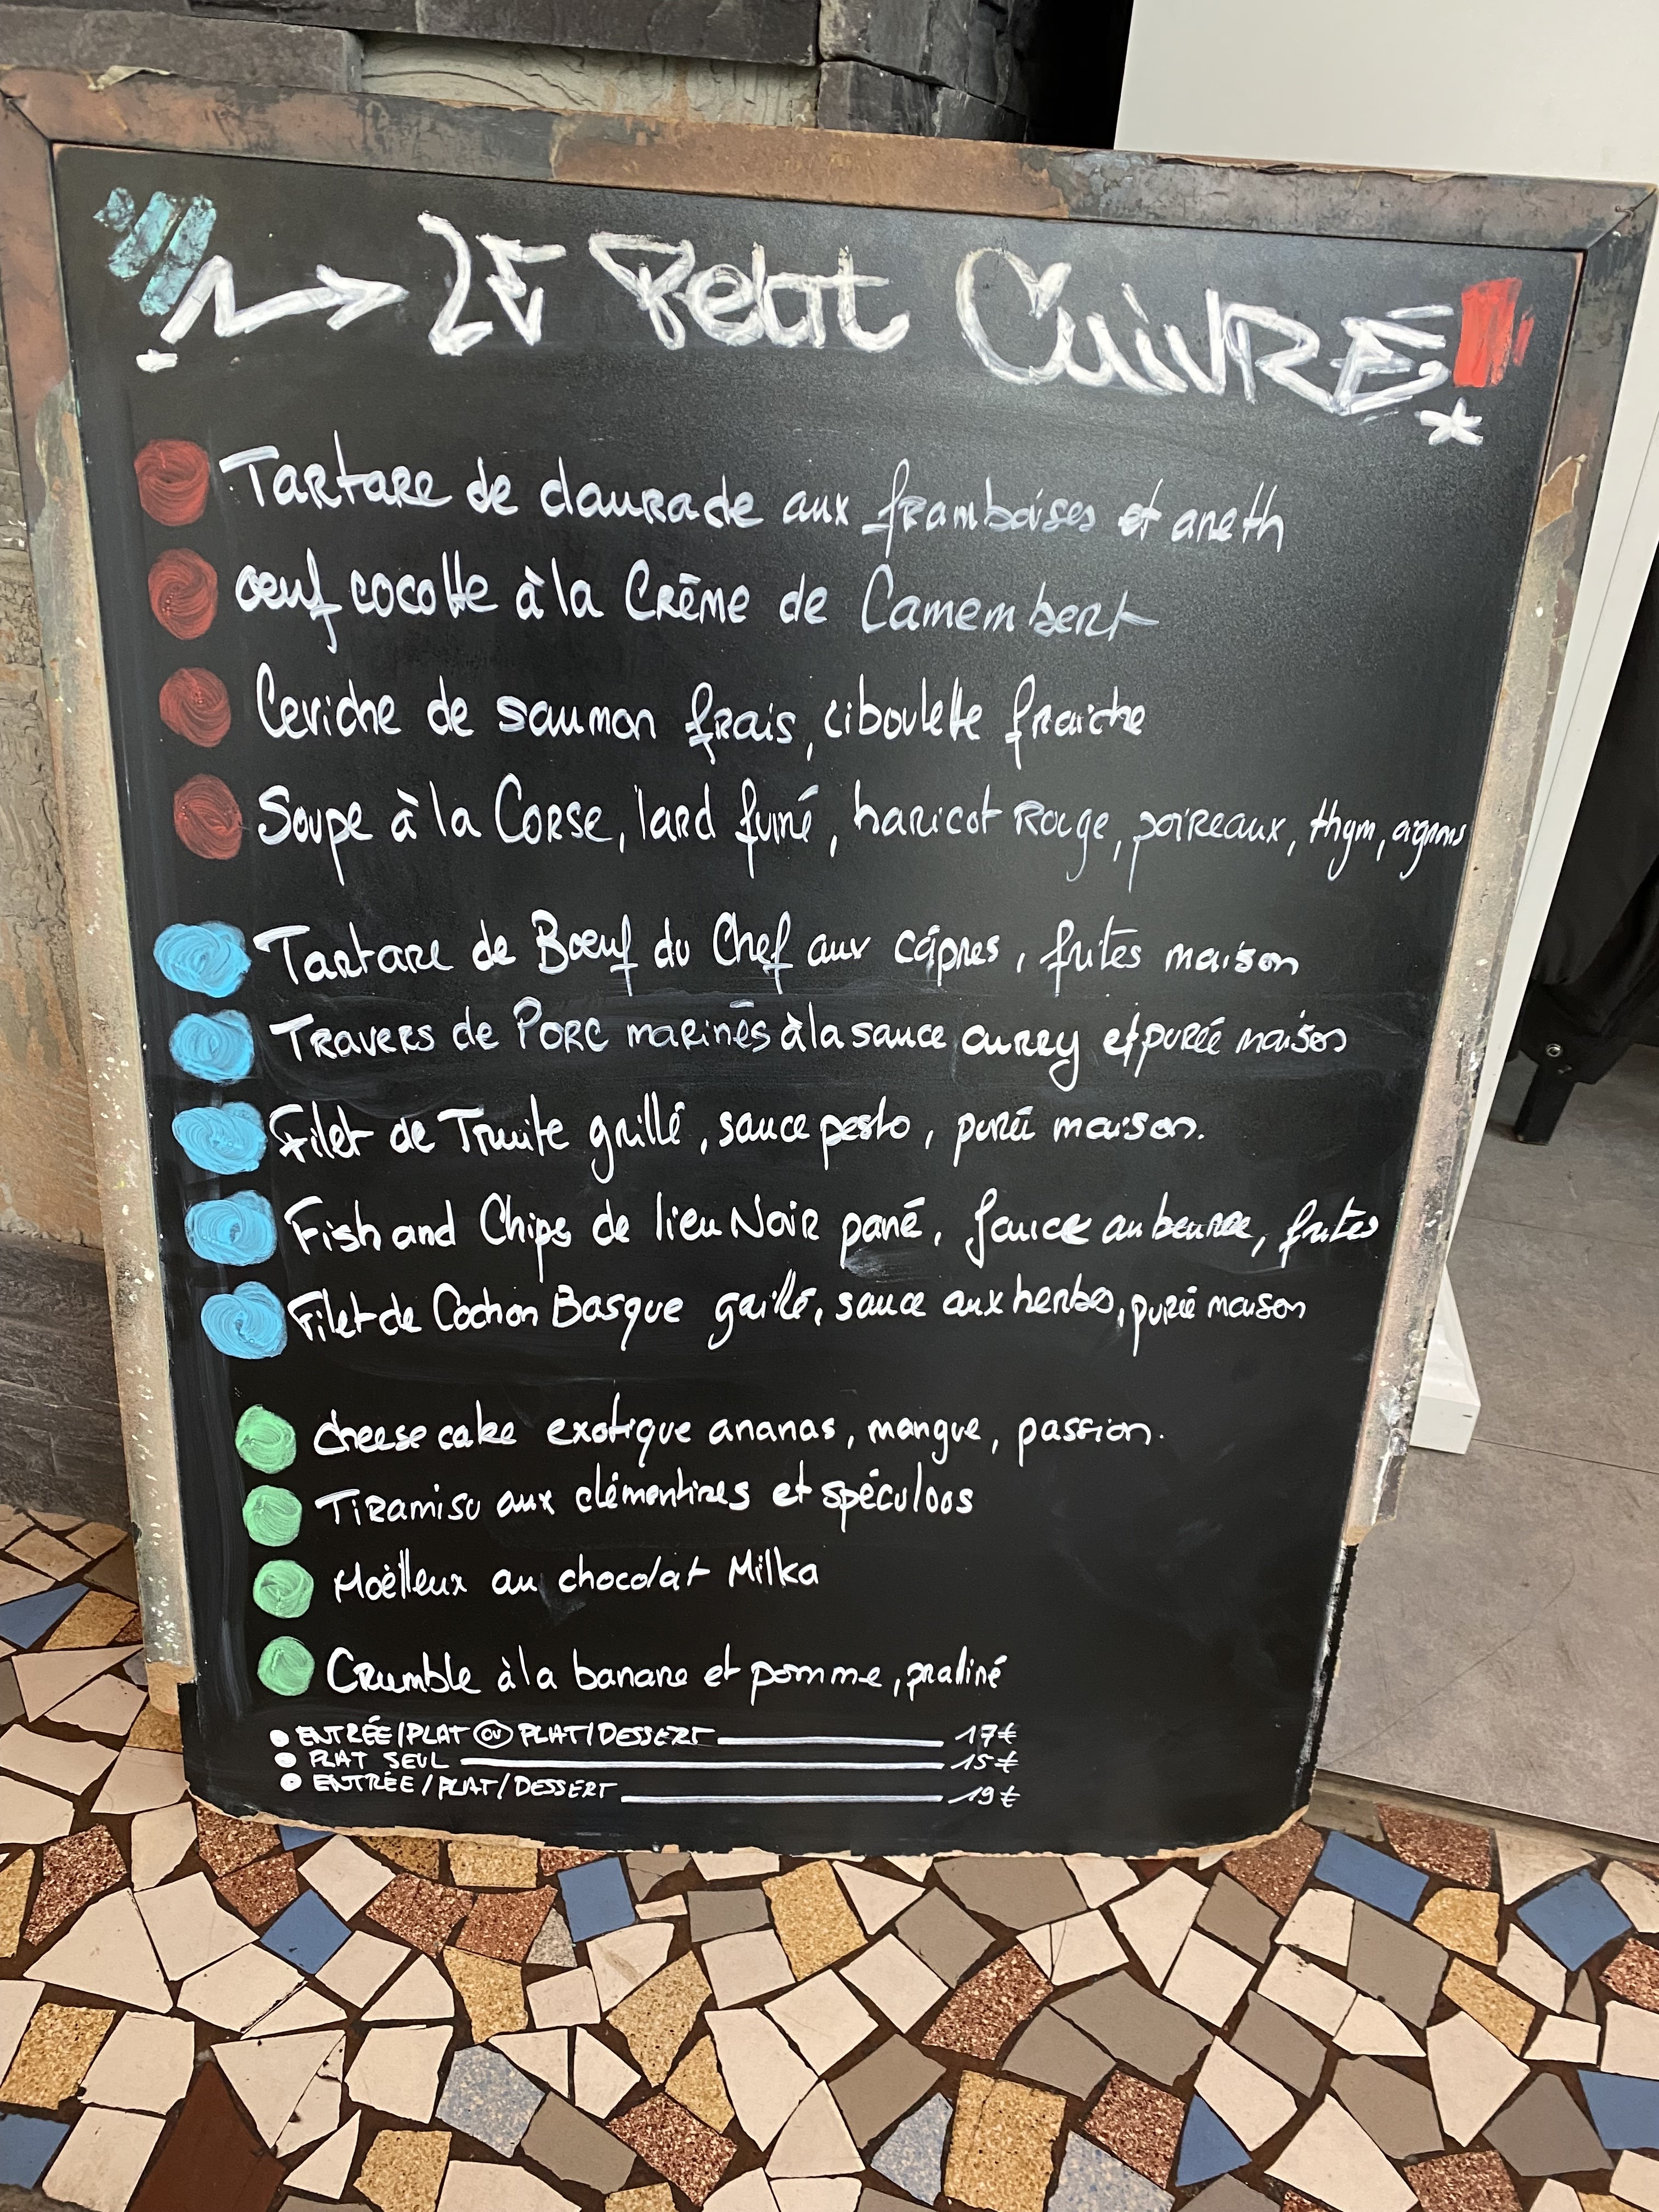 Le Petit Cuivré
Tartare de daurade aux framboises et aneth
œuf cocotte à la Crème de Camembert
Ceviche de saumon frais, ciboulette fraiche
Soupe à la Corse, lard fumé, haricot Rouge, poireaux, thym, oignons
Tartare de Bœuf du Chef aux câpres, frites maison
Travers de Porc marinés à la sauce curry et purée maison
Filet de Truite grillé, sauce pesto, purée maison.
Fish and Chips de lieu Noir pané, sauce au beurre, frites
Filet de Cochon Basque grillé, sauce aux herbes, purée maison
cheese cake exotique ananas, mangue, passion.
Tiramisu aux clémentines et spéculoos
Moëlleux au chocolat Milka
Crumble à la banane et pomme, praliné
ENTRÉE/PLAT OU PLAT/DESSERT 17€
PLAT SEUL 15€
ENTRÉE/PLAT/DESSERT 19€